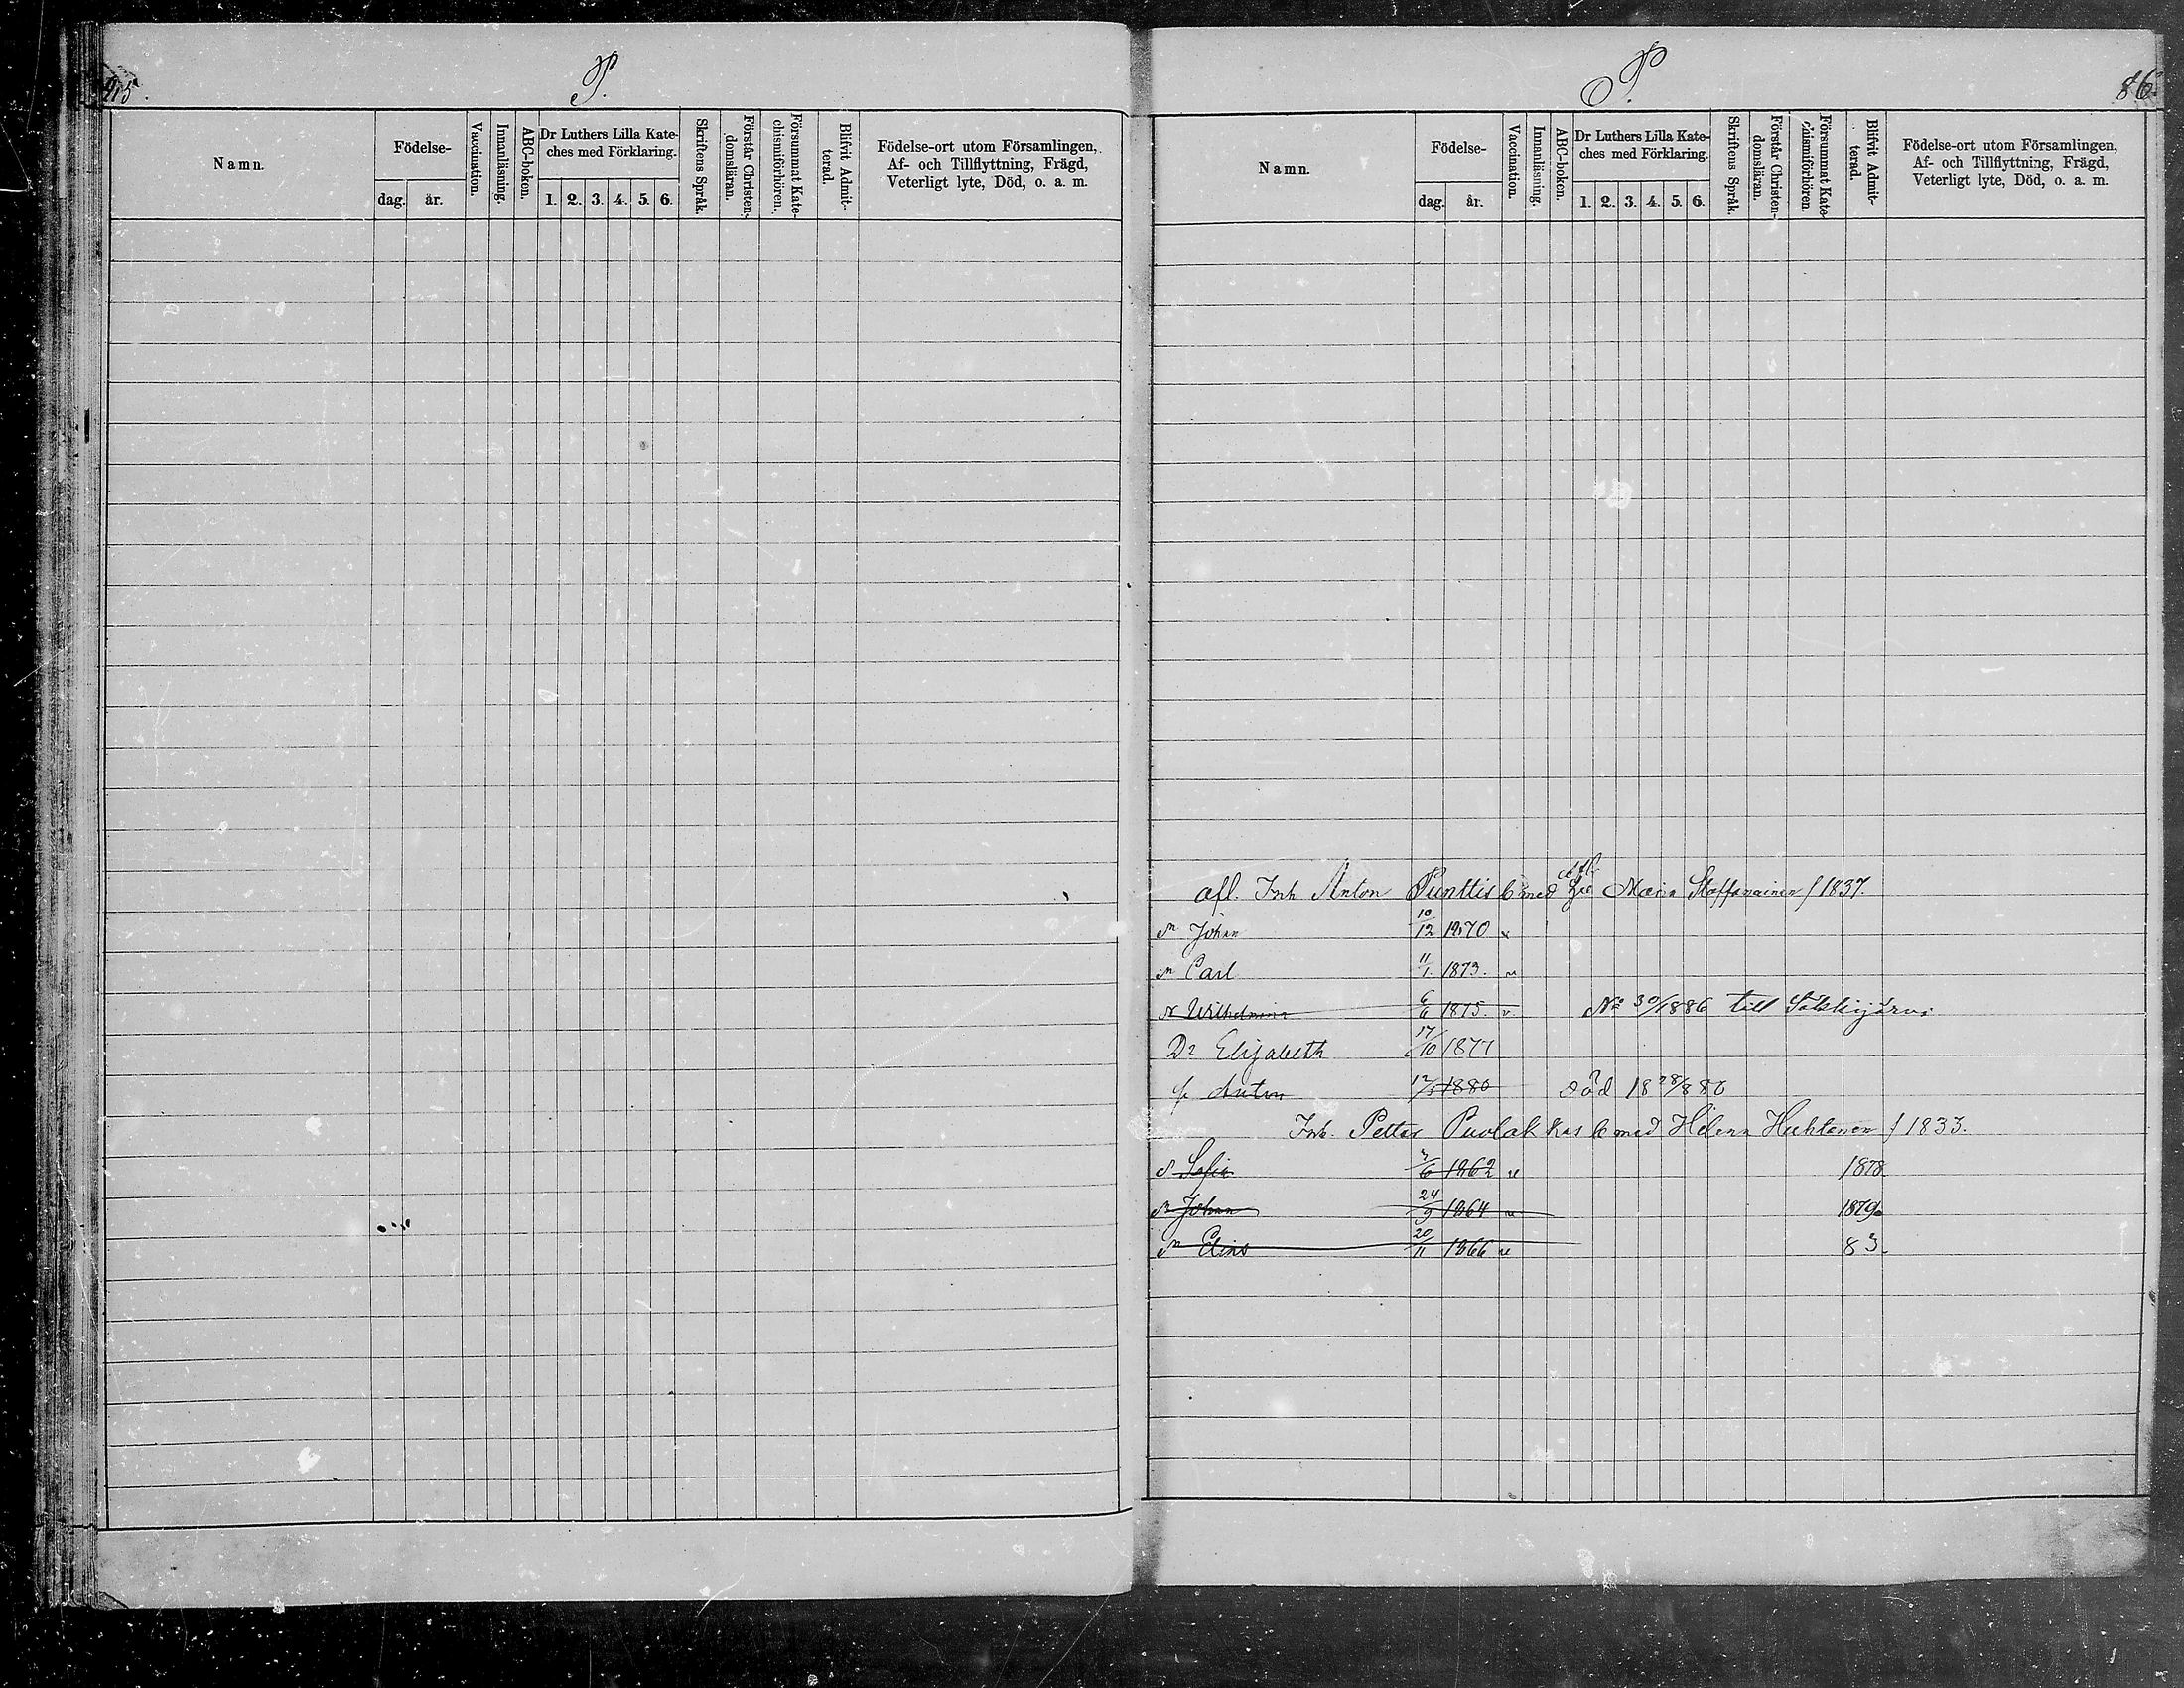 P.
Namn.
Födelse-
dag.
år.
Vaccination.
Innanläsning.
ABC-boken.
Dr Luthers Lilla Kate-
ches med Förklaring.
1. 2. 3. 4. 5. 6.
Skriftens Språk.
Förstår Christen-
domsläran.
Försummat Kate-
chismiförhören.
Blifvit Admit-
terad.
Födelse-ort utom Församlingen,
Af- och Tillflyttning, Frägd,
Veterligt lyte, Död, o. a. m.
P.
86.
Namn.
Födelse-
dag.
år.
Vaccination.
Innanläsning.
ABC-boken.
Dr Luthers Lilla Kate-
ches med Förklaring.
1. 2. 3. 4. 5. 6.
Skriftens Språk.
Förstår Christen-
domsläran.
Försummat Kate-
chismiförhören.
Blifvit Admit-
terad.
Födelse-ort utom Församlingen,
Af- och Tillflyttning, Frägd,
Veterligt lyte, Död, o. a. m.
afl. Inh Anton Punttis med Maria Staffanainen f 1837.
Sn Johan 10/12 1870 v
Sn Carl 11/1. 1873. v
Wilhelmina 6/6 1875. v. No 30/1886 till Säkkijärvi
Dr Elisabeth 17/10 1877
Anton 12/5 1880 död 18 28/8 80
Inh. Petter Puolakkas med Helena Huhtanen f 1833.
Sofia 3/6 1862 v 1878
Sn Johan 24/9 1864 v 1879
Sn Elias 20/11 1866 v 83.